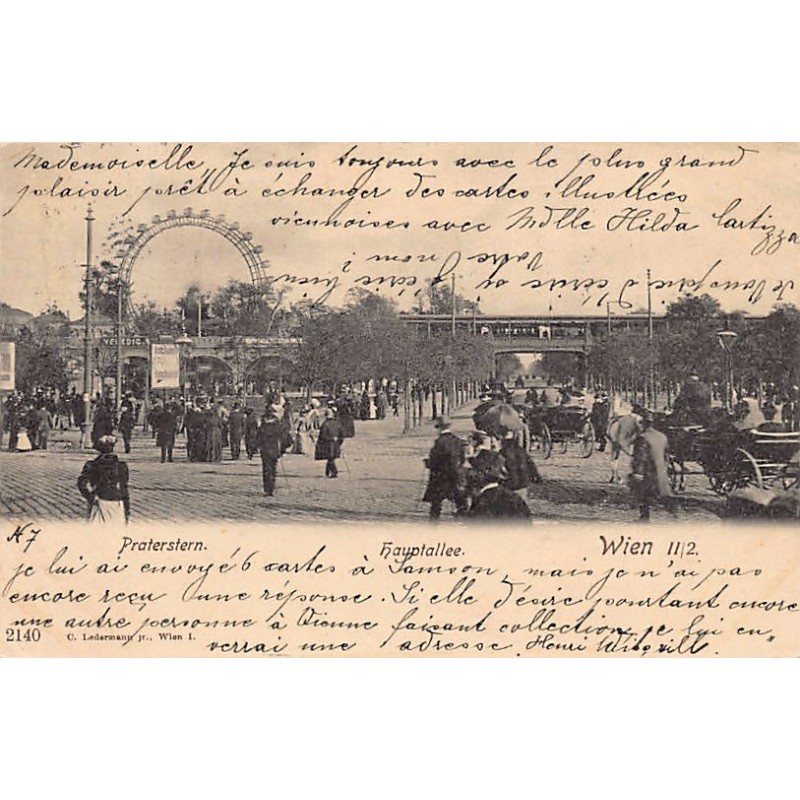 Mademoiselle, Je suis toujours avec le plus grand
plaisir prêt à échanger des cartes illustrées
viennoises avec Mdlle Hilda
votre nom?
VENEDIG
N 7
Praterstern. Hauptallee. Wien II/2.
je lui ai envoyé 6 cartes à Samson, mais je n'ai pas
encore reçu une réponse. Si elle désire pourtant encore
une autre personne à Vienne faisant collection, je lui en-
verrai une adresse. Henri
2140 C. Ledermann jr., Wien I.